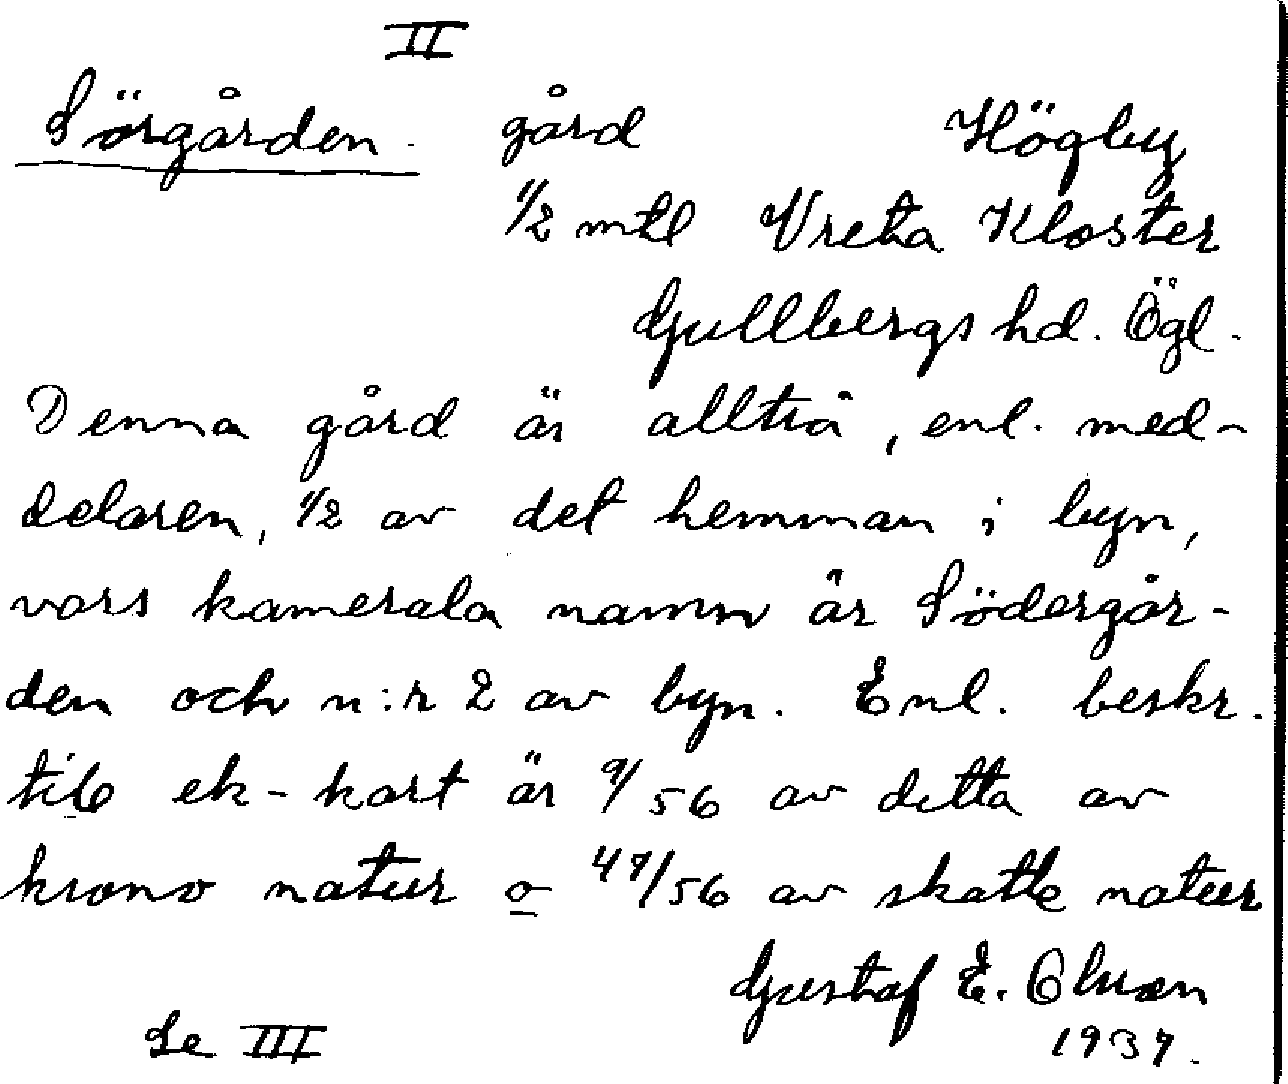 II
Sörgården. gård Högby
1/2 mtl Vreta Kloster
Gullbergs hd. Ögl.
Denna gård är alltså, enl. med-
delaren, 1/2 av det hemman i byn,
vars kamerala namn är Södergår-
den och n:r 2 av byn. Enl. beskr.
till ek-kart är 9/56 av detta av
krono natur o 47/56 av skatte natur
Gustaf E. Olsson
1937.
Se III